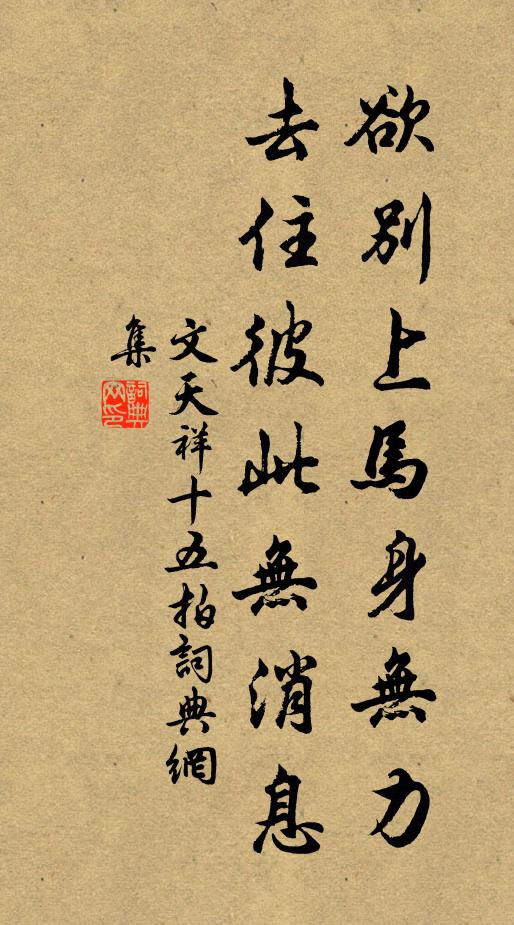 欲別上馬身無力
去住彼此無消息
文天祥十五拍詞典網
集
詞典
網印